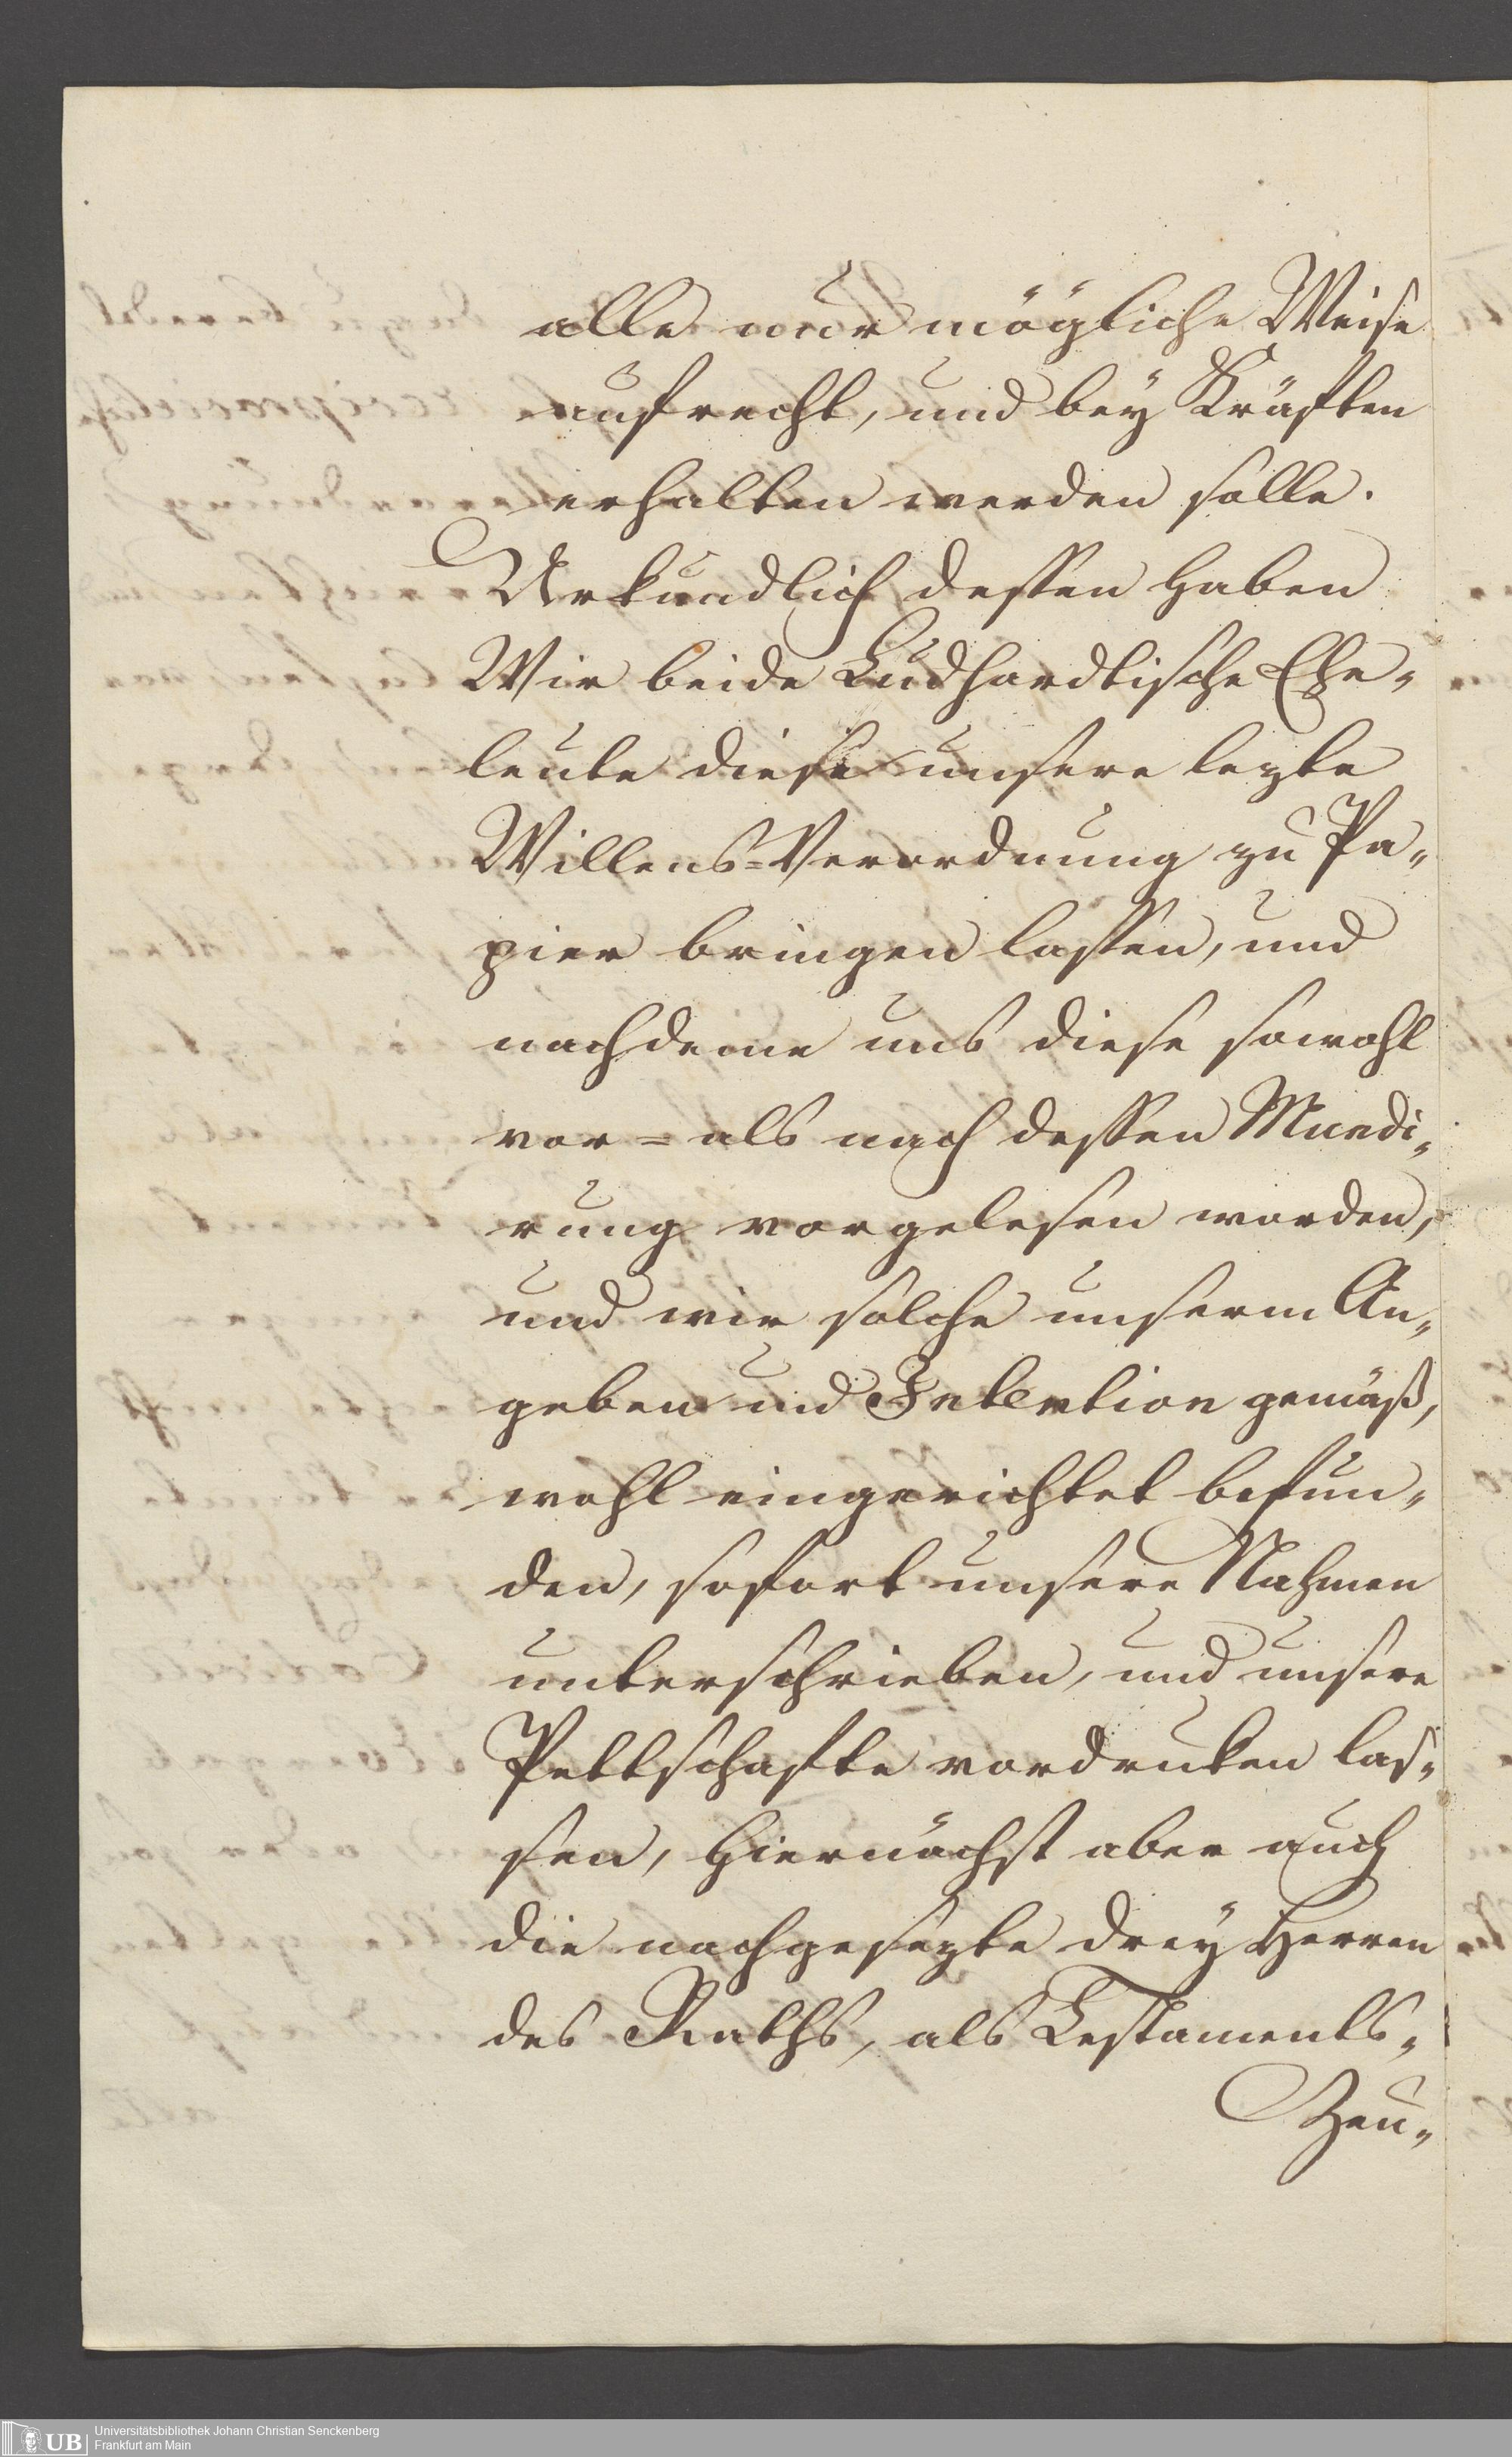 alle nur mögliche Weise
aufrecht, und bey Kräften
erhalten werden solle.
Urkundlich dessen haben
Wir beide Ludhardtische Ehe„
leute diese unsere lezte
Willens=Verordnung zu Pa„
pier bringen lassen, und
nachdeme uns diese sowohl
vor= als nach dessen Mundi„
rung vorgelesen worden,
und wir solche unserm An„
geben und Intention gemäß,
wohl eingerichtet befun„
den, sofort unsere Nahmen
unterschrieben, und unsere
Pettschafte vordruken las„
sen, hiernächst aber auch
die nachgesezte drey Herren
des Raths, als Testaments„
Zeu„
UB Universitätsbibliothek Johann Christian Senckenberg
Frankfurt am Main